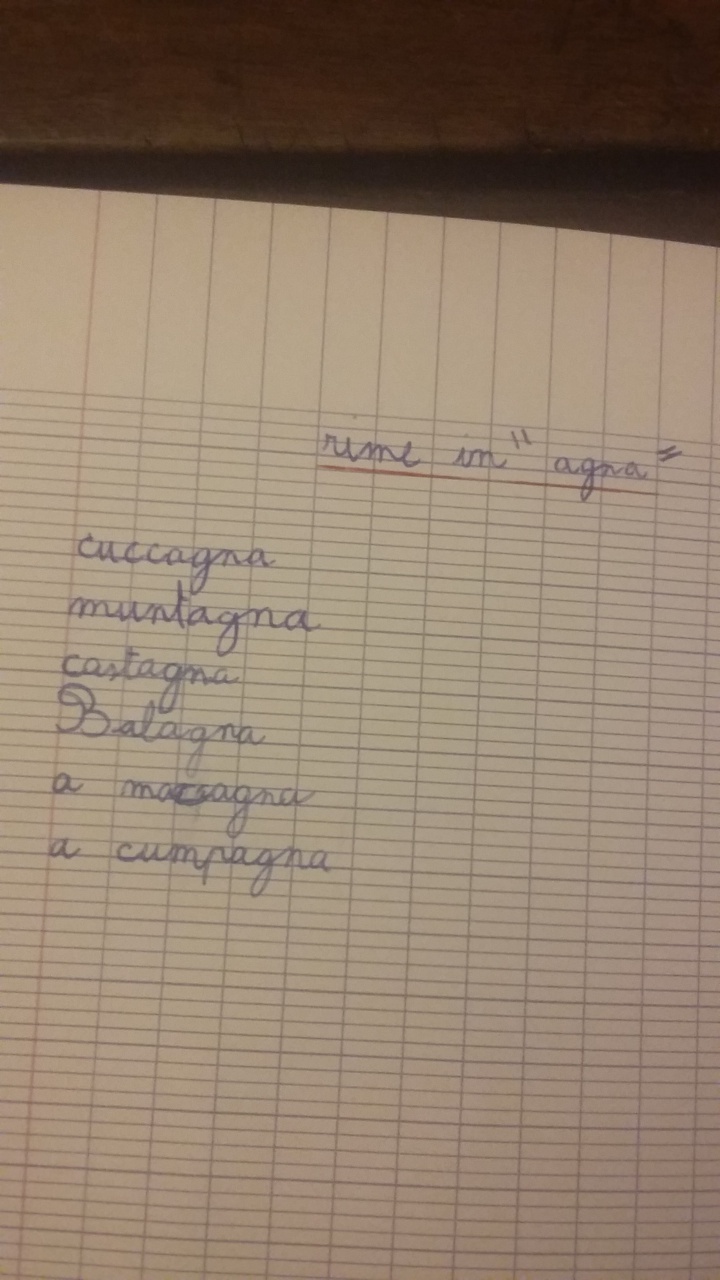 rime in " agna "
cuccagna
muntagna
castagna
Balagna
a
a cumpagna